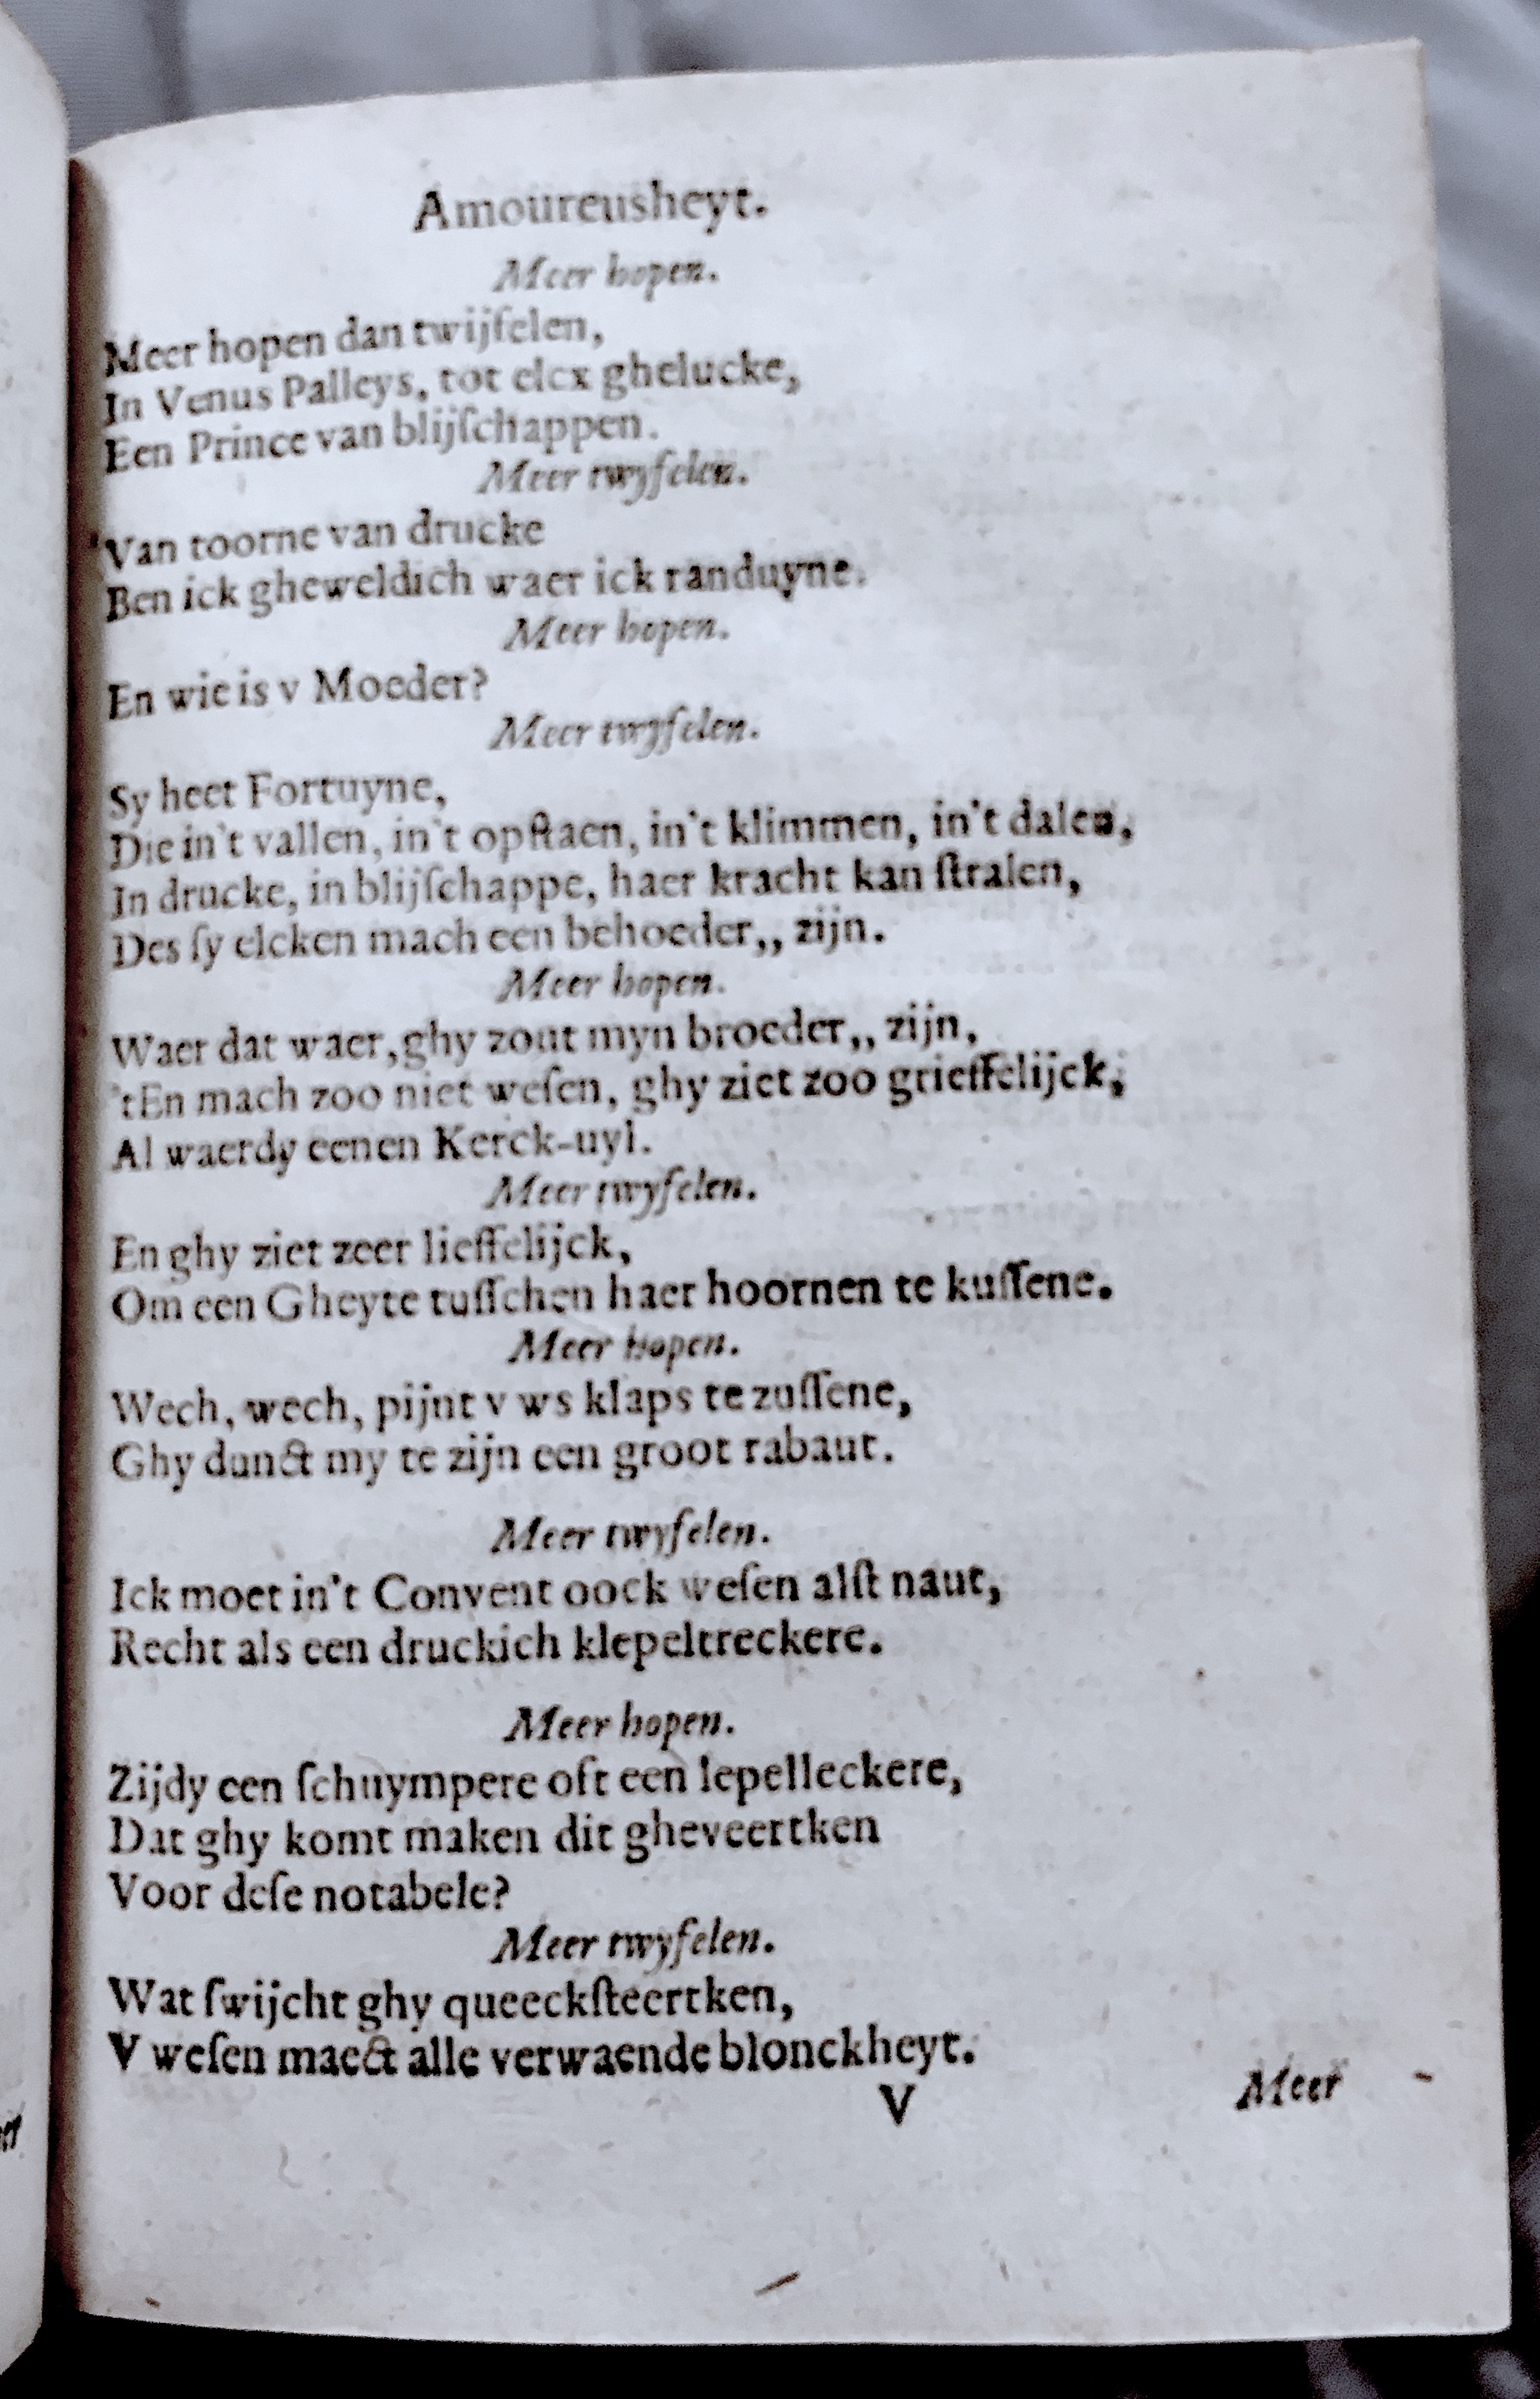 Amoureusheyt.
Meer hopen.
Meer hopen dan twijfelen,
In Venus Palleys, tot elcx ghelucke,
Een Prince van blijſchappen.
Meer twyfelen.
Van toorne van drucke
Ben ick gheweldich waer ick randuyne.
Meer hopen.
En wie is v Moeder?
Meer twyfelen.
Sy heet Fortuyne,
Die in't vallen, in't opſtaen, in't klimmen, in't dalen,
In drucke, in blijſchappe, haer kracht kan ſtralen,
Des ſy elcken mach een behoeder,, zijn.
Meer hopen.
Waer dat waer, ghy zout myn broeder,, zijn,
'tEn mach zoo niet weſen, ghy ziet zoo grieffelijck,
Al waerdy eenen Kerck-uyl.
Meer twyfelen.
En ghy ziet zeer lieffelijck,
Om een Gheyte tuſſchen haer hoornen te kuſſene.
Meer hopen.
Wech, wech, pijnt v ws klaps te zuſſene,
Ghy dunct my te zijn een groot rabaut.
Meer twyfelen.
Ick moet in't Convent oock weſen alſt naut,
Recht als een druckich klepeltreckere.
Meer hopen.
Zijdy een ſchuympere oft een lepelleckere,
Dat ghy komt maken dit gheveertken
Voor deſe notabele?
Meer twyfelen.
Wat ſwijcht ghy queeckſteertken,
V weſen maect alle verwaende blonckheyt.
V
Meer